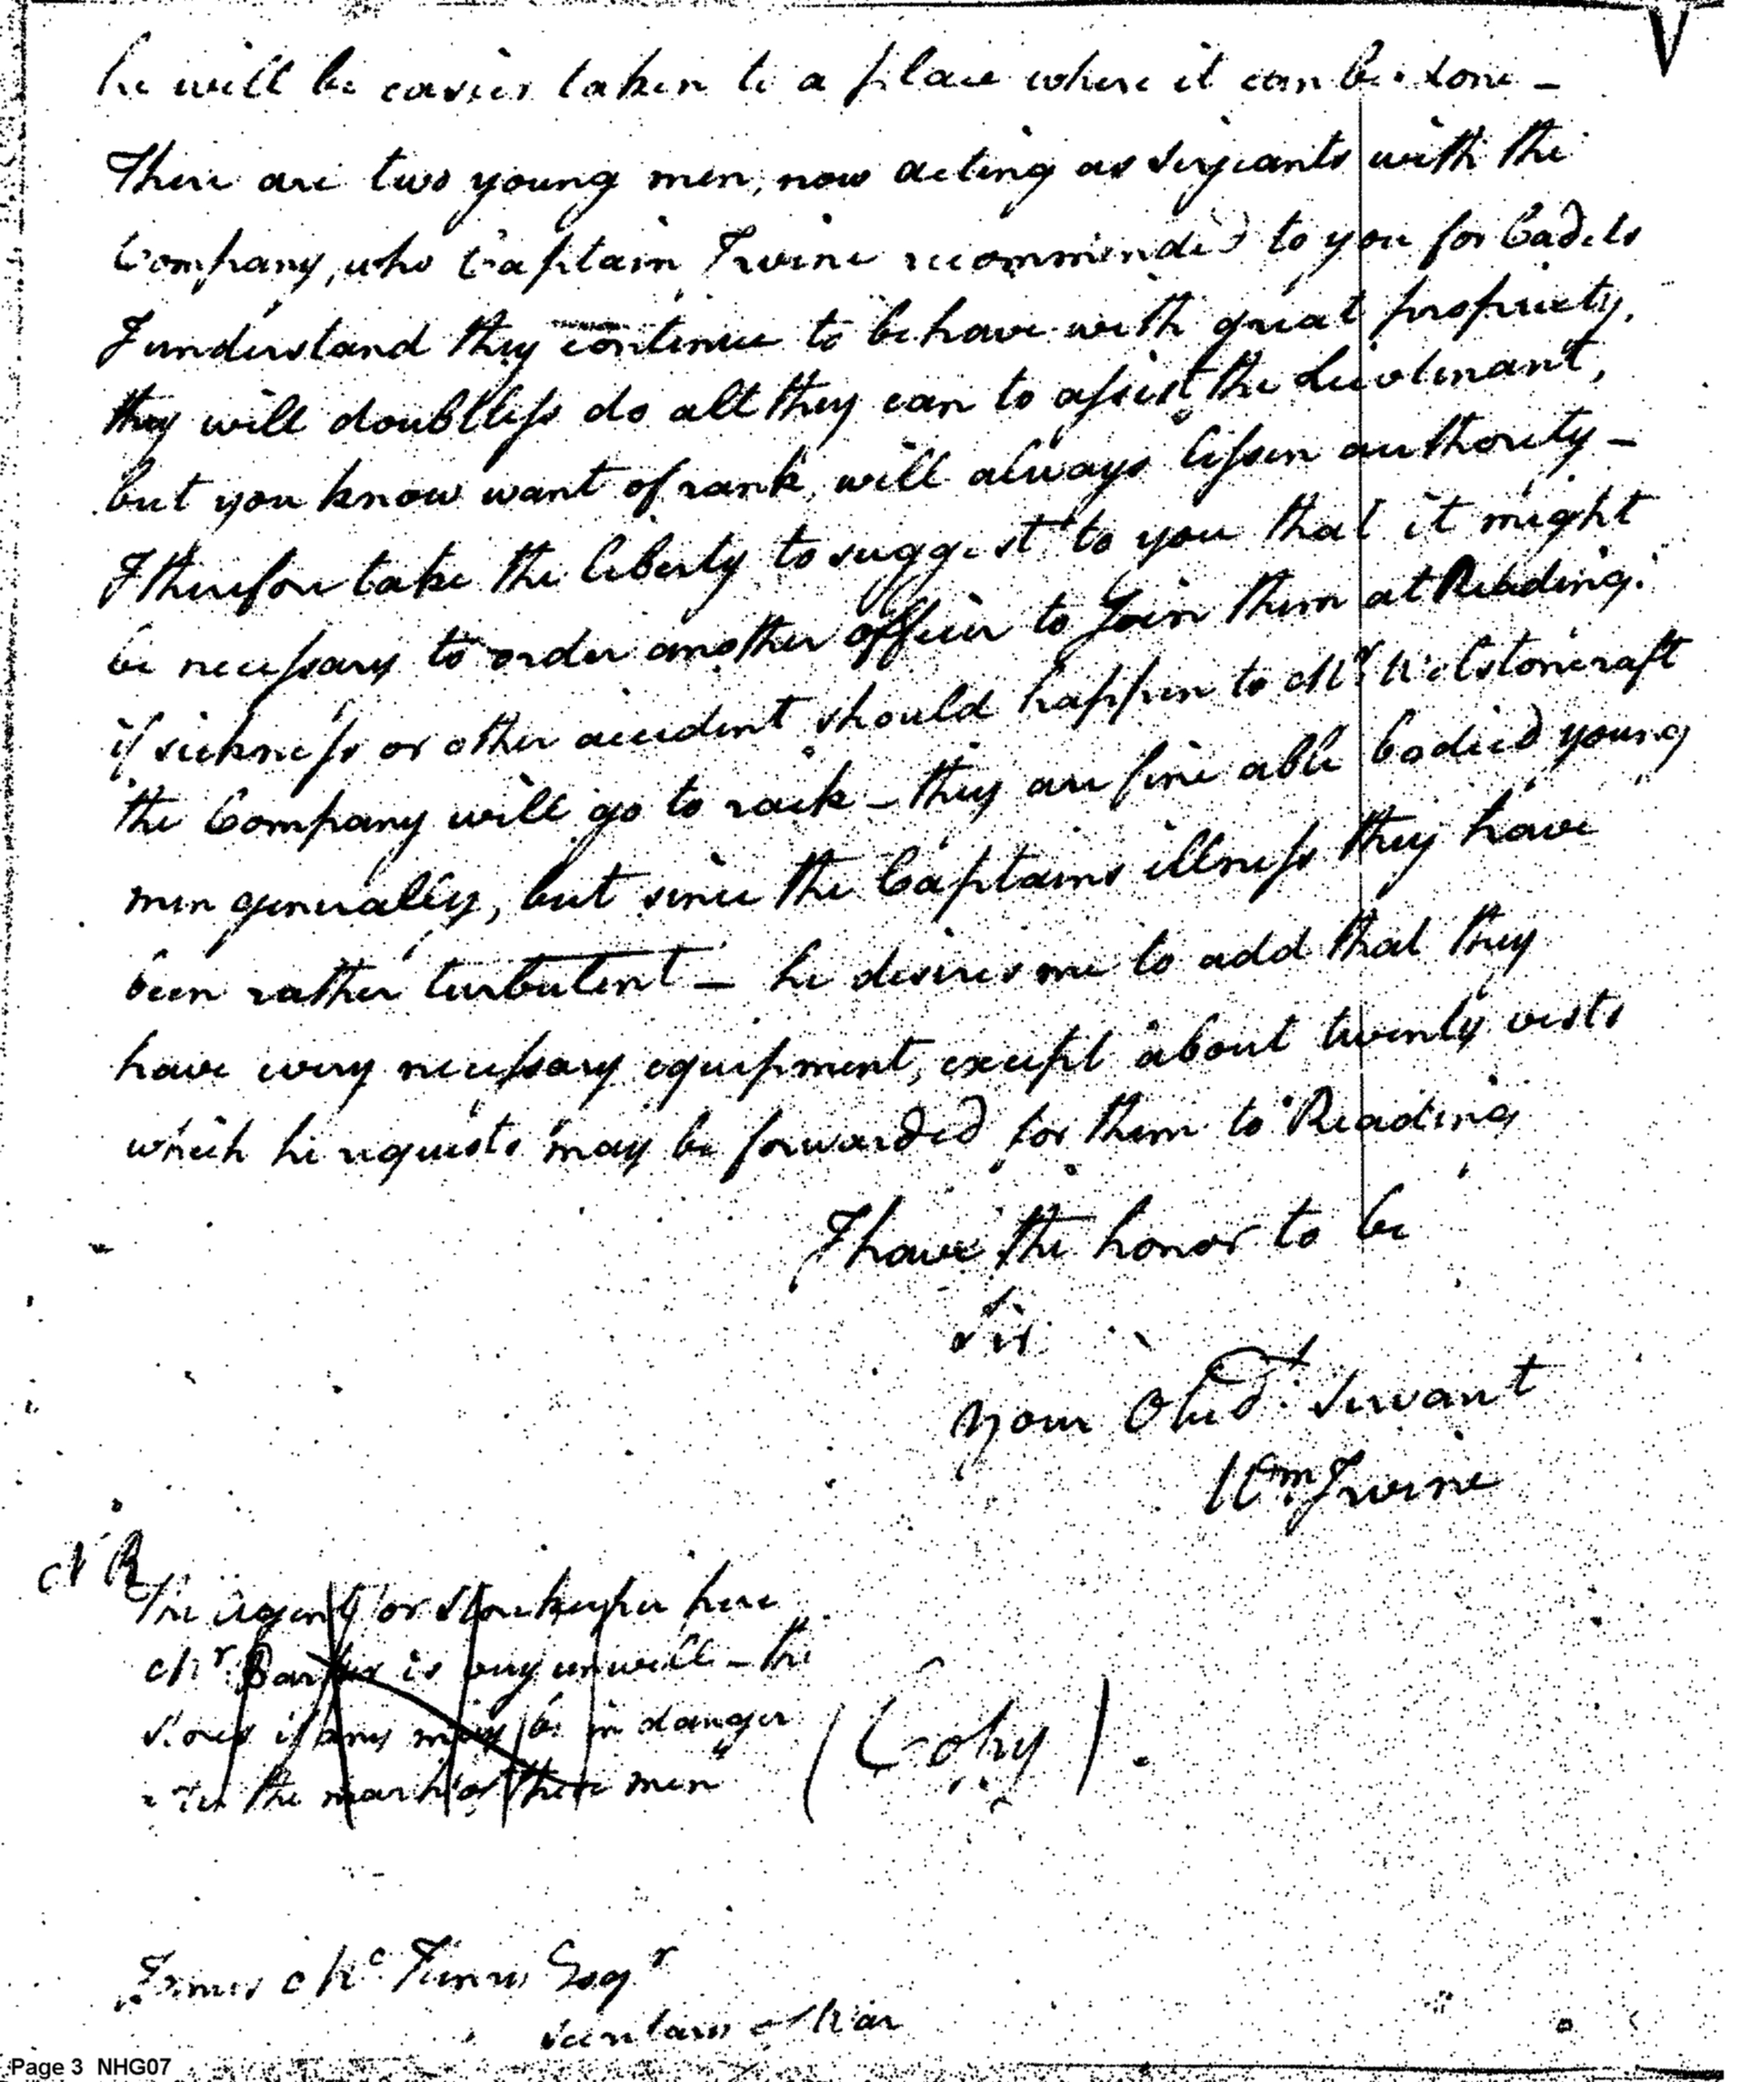 he will be easier taken to a place where it can be done –
There are two young men, now acting as serjeants with the
Company, who Captain Irvine recommended to you for Cadets
I understand they continue to behave with great propriety,
they will doubtless do all they can to assist the Lieutenant,
but you know want of rank, will always lessen authority –
I therefore take the liberty to suggest to you that it might
be necessary to order another officer to Join them at Reading.
if sickness or other accident should happen to Mr. Wolstoncraft
the Company will go to rack – they are fine able bodied young
men generally, but since the Captains illness they have
been rather turbulent – he desires me to add that they
have every necessary equipment, except about twenty vests
which he requests may be forwarded for them to Reading
I have the honor to be
Sir
your Obed. Servant
Wm. Irvine
N B
The agent or storekeeper here
Mr. is very unwell – the
stores if any may be in danger
the march of these men
(Copy).
James McHenry Esqr
Secretary of War
Page 3 NHG07